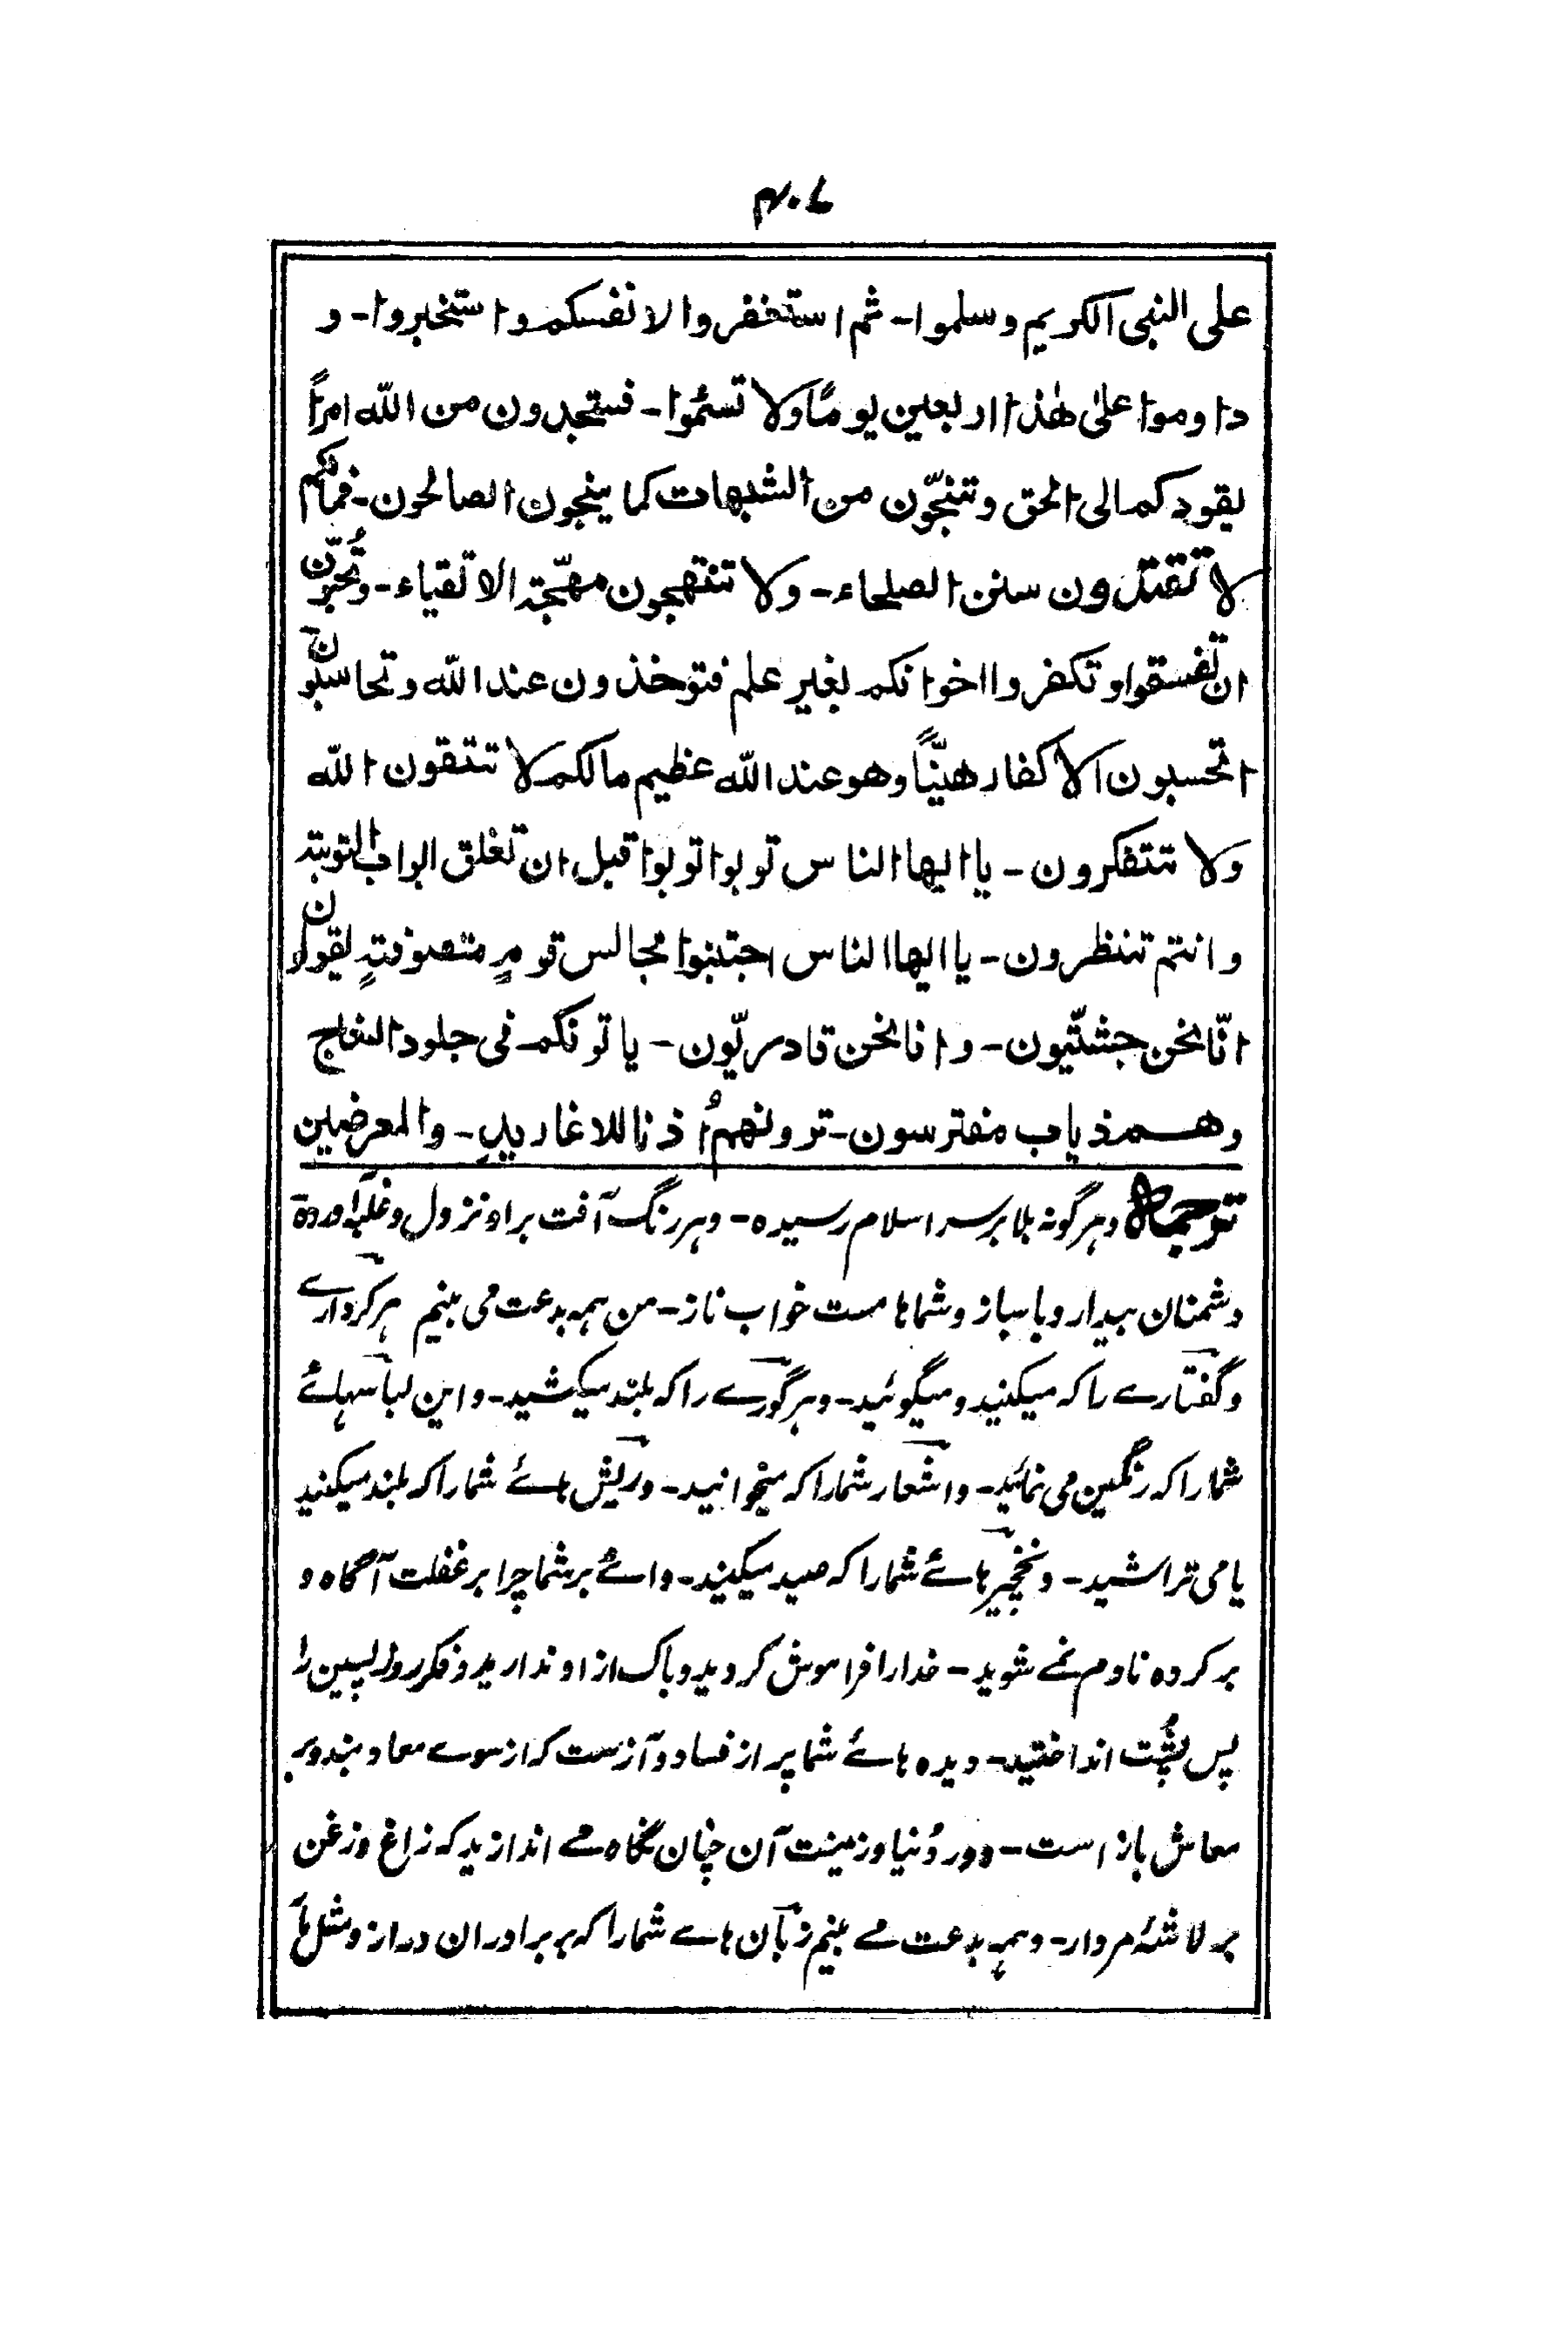 ۴۰۷
على النبى الكريم وسلموا۔ ثم استغفروا لانفسكم واستخبروا۔ و
داوموا علىٰ هٰذا اربعين يومًا ولا تسئموا۔ فستجدون من اللّه امرًا
يقودكم الى الحق وتنجّون من الشبهات كما ينجون الصالحون۔ فمالكم
لا تقتدون سنن الصلحاء۔ ولا تنتهجون مهجّة الاتقياء۔ وتُحبّون
ان تفسقوا وتكفروا اخوانكم بغير علم فتوخذون عند اللّه وتحاسبون
اتحسبون الاكفار هيّنًا وهو عند اللّه عظيم مالكم لا تتقون اللّه
ولا تتفكرون۔ يا ايها الناس توبوا توبوا قبل ان تغلق ابواب التوبة
وانتم تنظرون۔ يا ايها الناس اجتنبوا مجالس قومٍ متصوفةٍ يقولون
انّا نحن جشتّيون۔ وانا نحن قادريّون۔ ياتونكم فى جلود النعاج
وهم ذياب مفترسون۔ ترونهم اُذنا للاغاريد۔ والمعرضين
ترجمہ وہر گونہ بلا بر سر اسلام رسیدہ۔ وہر رنگ آفت براو نزول و غلبہ آوردہ
دشمنان بیدار و باساز و شماہا مست خواب ناز۔ من ہمہ بدعت می بینم ہر کردارے
و گفتارے را کہ میکنید و میگوئید۔ و ہر گورے را کہ بلند میکشید۔ و این لباسہائے
شما را کہ رنگین می نمائید۔ و اشعار شما را کہ میخوانید۔ و ریش ہائے شما را کہ بلند میکنید
یا می تراشید۔ و نخچیر ہائے شما را کہ صید میکنید۔ وائے بر شما چرا بر غفلت آگاہ و
بر کردہ نادم نمے شوید۔ خدا را فراموش کردید و باک از او ندارید و فکر روز پسین را
پس پُشت انداختید۔ دیدہ ہائے شما پر از فساد و آزست کہ از سوے معاد بند و بر
معاش باز است۔ و در دُنیا و زینت آن چنان نگاہ مے اندازید کہ زاغ و زغن
بر لاشۂ مردار۔ و ہمہ بدعت مے بینم زبان ہاے شما را کہ بر برادران دراز و مثل